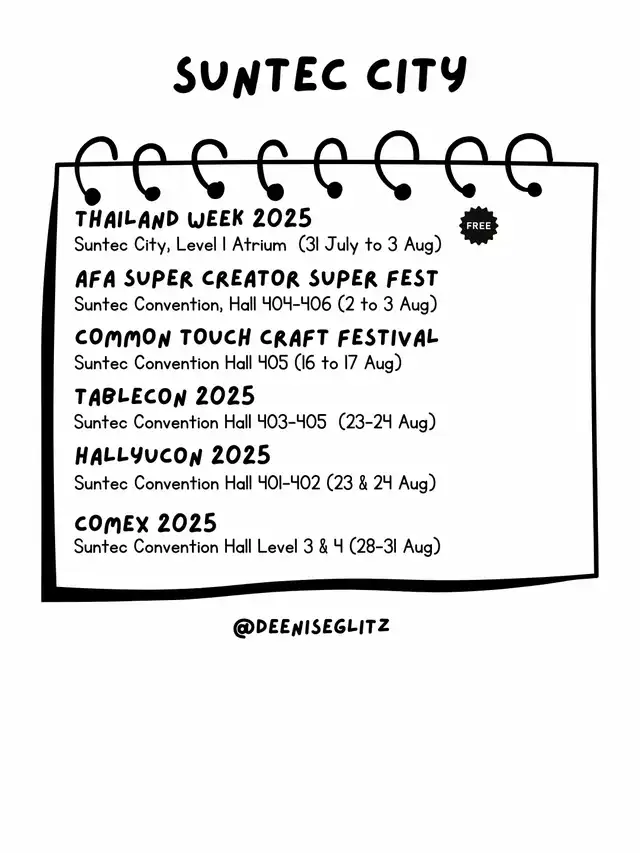 SUNTEC CITY
THAILAND WEEK 2025
FREE
Suntec City, Level 1 Atrium (31 July to 3 Aug)
AFA SUPER CREATOR SUPER FEST
Suntec Convention, Hall 404-406 (2 to 3 Aug)
COMMON TOUCH CRAFT FESTIVAL
Suntec Convention Hall 405 (16 to 17 Aug)
TABLECON 2025
Suntec Convention Hall 403-405 (23-24 Aug)
HALLYUCON 2025
Suntec Convention Hall 401-402 (23 & 24 Aug)
COMEX 2025
Suntec Convention Hall Level 3 & 4 (28-31 Aug)
@DEENISEGLITZ